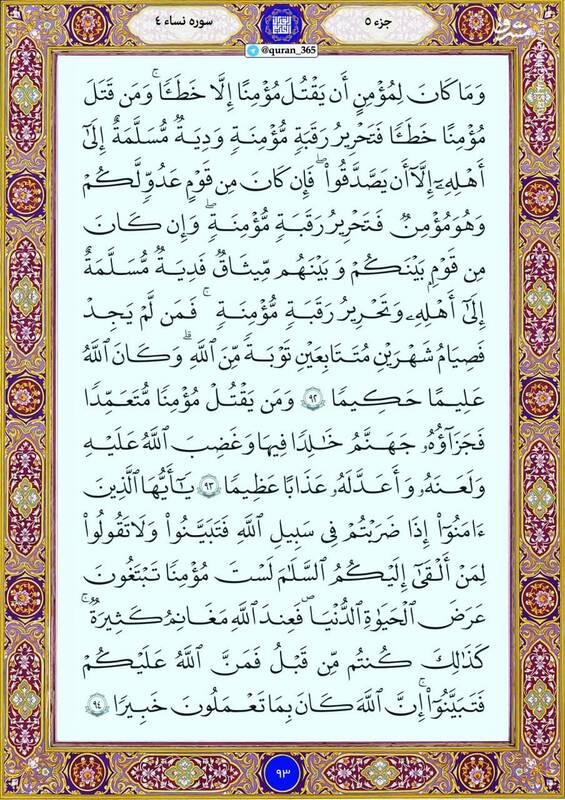 جزء ٥
@quran_365
سوره نساء ٤
مشرق
وَمَا كَانَ لِمُؤْمِنٍ أَن يَقْتُلَ مُؤْمِنًا إِلَّا خَطَـًٔا ۚ وَمَن قَتَلَ
مُؤْمِنًا خَطَـًٔا فَتَحْرِيرُ رَقَبَةٍ مُّؤْمِنَةٍ وَدِيَةٌ مُّسَلَّمَةٌ إِلَىٰٓ
أَهْلِهِۦٓ إِلَّآ أَن يَصَّدَّقُوا۟ ۚ فَإِن كَانَ مِن قَوْمٍ عَدُوٍّ لَّكُمْ
وَهُوَ مُؤْمِنٌ فَتَحْرِيرُ رَقَبَةٍ مُّؤْمِنَةٍ ۖ وَإِن كَانَ
مِن قَوْمٍۭ بَيْنَكُمْ وَبَيْنَهُم مِّيثَـٰقٌ فَدِيَةٌ مُّسَلَّمَةٌ
إِلَىٰٓ أَهْلِهِۦ وَتَحْرِيرُ رَقَبَةٍ مُّؤْمِنَةٍ ۖ فَمَن لَّمْ يَجِدْ
فَصِيَامُ شَهْرَيْنِ مُتَتَابِعَيْنِ تَوْبَةً مِّنَ ٱللَّهِ ۗ وَكَانَ ٱللَّهُ
عَلِيمًا حَكِيمًا ٩٢ وَمَن يَقْتُلْ مُؤْمِنًا مُّتَعَمِّدًا
فَجَزَآؤُهُۥ جَهَنَّمُ خَـٰلِدًا فِيهَا وَغَضِبَ ٱللَّهُ عَلَيْهِ
وَلَعَنَهُۥ وَأَعَدَّ لَهُۥ عَذَابًا عَظِيمًا ٩٣ يَـٰٓأَيُّهَا ٱلَّذِينَ
ءَامَنُوٓا۟ إِذَا ضَرَبْتُمْ فِى سَبِيلِ ٱللَّهِ فَتَبَيَّنُوا۟ وَلَا تَقُولُوا۟
لِمَنْ أَلْقَىٰٓ إِلَيْكُمُ ٱلسَّلَـٰمَ لَسْتَ مُؤْمِنًا تَبْتَغُونَ
عَرَضَ ٱلْحَيَوٰةِ ٱلدُّنْيَا فَعِندَ ٱللَّهِ مَغَانِمُ كَثِيرَةٌ ۚ
كَذَٰلِكَ كُنتُم مِّن قَبْلُ فَمَنَّ ٱللَّهُ عَلَيْكُمْ
فَتَبَيَّنُوٓا۟ ۚ إِنَّ ٱللَّهَ كَانَ بِمَا تَعْمَلُونَ خَبِيرًا ٩٤
٩٣